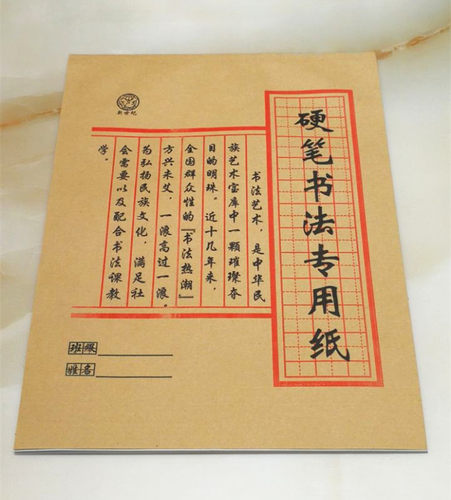 硬笔书法专用纸
新世纪
书法艺术，是中华民
族艺术宝库中一颗璀璨夺
目的明珠。近十几年来，
全国群众性的『书法热潮』
方兴未艾，一浪高过一浪。
为弘扬民族文化，满足社
会需要以及配合书法课教
学。
班级
姓名